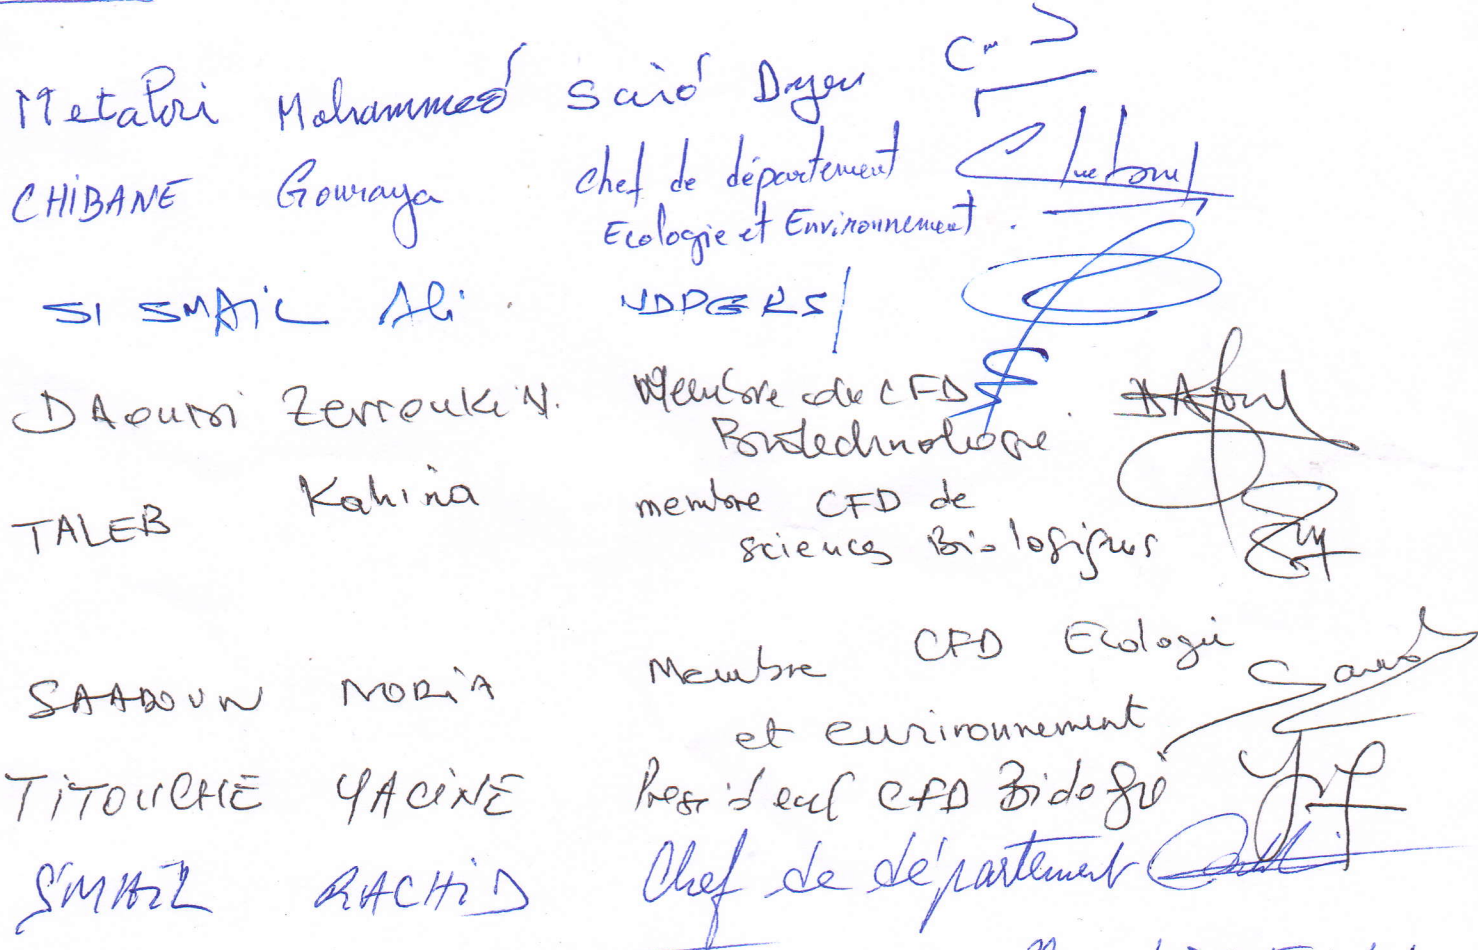 Metahri Mohammed Saïd Doyen
CHIBANE Gouraya Chef de département
Ecologie et Environnement.
SI SMAIL Ali VDPGRS
DAOUDI Zerrouki N. Membre du CFD
Biotechnologie
TALEB Kahina membre CFD de
sciences Biologiques
SAADOUN NORIA Membre CFD Ecologie
et environnement
TITOUCHE YACINE President CFD Biologie
SMAIL RACHID Chef de département